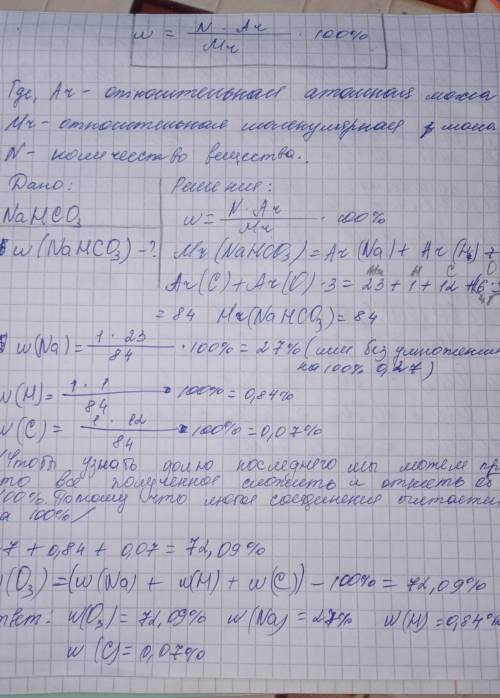 w = N · Ar / Mr · 100%
Где, Ar - относительная атомная масса
Mr - относительная молекулярная масса
N - количество вещества.
Дано: Решение:
NaHCO3 w = N · Ar / Mr · 100%
w(NaHCO3) - ? Mr(NaHCO3) = Ar(Na) + Ar(H) +
Na H C O
Ar(C) + Ar(O) · 3 = 23 + 1 + 12 + 16 · 3
48
= 84 Mr(NaHCO3) = 84
w(Na) = 1 · 23 / 84 · 100% = 27% (или без умножения
на 100% 0,27)
w(H) = 1 · 1 / 84 · 100% = 0,84%
w(C) = 1 · 12 / 84 · 100% = 0,07%
Чтобы узнать долю последнего мы можем
то всё полученное сложить и отнять от
100%. Потому что любое соединение
за 100%/
7 + 0,84 + 0,07 = 72,09%
(O3) = (w(Na) + w(H) + w(C)) - 100% = 72,09%
твет: w(O3) = 72,09% w(Na) = 27% w(H) = 0,84%
w(C) = 0,07%